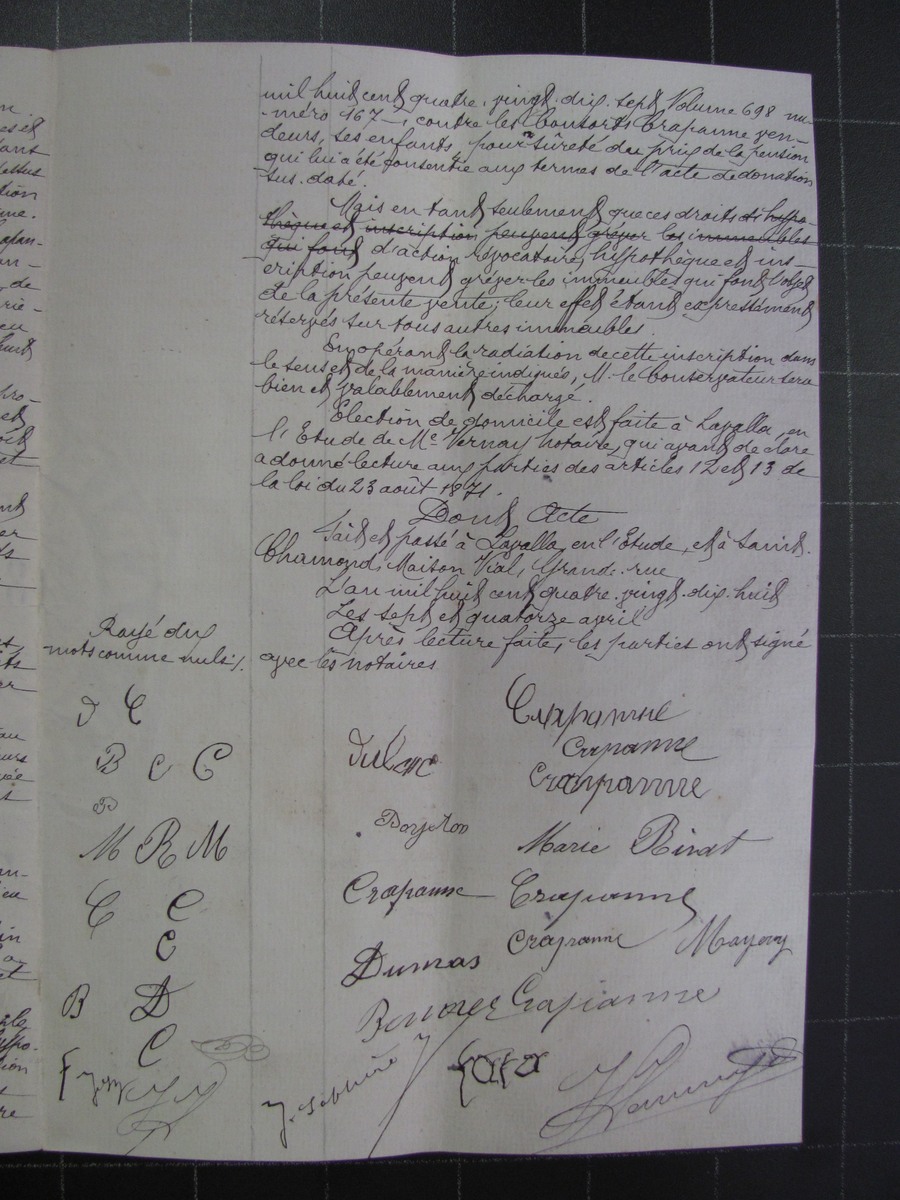 mil huit cent quatre-vingt-dix-sept Volume 698 nu-
méro 167, contre les Consorts Crapanne ven-
deurs, ses enfants, pour sûreté du prix de la pension
qui lui a été consentie aux termes de l'acte de donation
sus-daté.
Mais en tant seulement que ces droits et hypo-
thèque et inscription peuvent grever les immeubles
qui font d'action révocatoire, hypothèque et ins-
cription peuvent grever les immeubles qui font l'objet
de la présente vente; leur effet étant expressément
réservés sur tous autres immeubles.
En opérant la radiation de cette inscription dans
le sens et de la manière indiqués, M. le Conservateur sera
bien et valablement déchargé.
Élection de domicile est faite à Lavalla, en
l'Étude de Me Vernay notaire, qui avant de clore
a donné lecture aux parties des articles 12 et 13 de
la loi du 23 août 1871.
Dont Acte
Fait et passé à Lavalla en l'Étude, et à Saint-
Chamond, Maison Vial, Grande-rue
L'an mil huit cent quatre-vingt-dix-huit
Les sept et quatorze avril
Après lecture faite, les parties ont signé
avec les notaires
Rayé dix
mots comme nuls
C
B C C
B
M R M
C C
C
B D
C
Crapanne
Crapanne
Crapanne
Marie Rivat
Crapanne Crapanne
Dumas Crapanne
Crapanne